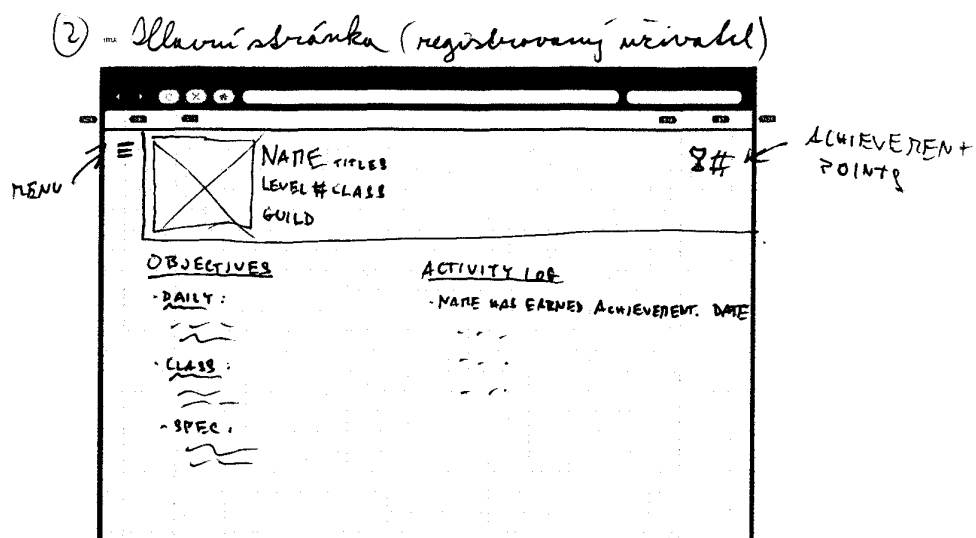 2 - Hlavní stránka (registrovaný uživatel)
MENU
NAME TITLES
LEVEL # CLASS
GUILD
#
ACHIEVEMENT
POINTS
OBJECTIVES
- DAILY:
- CLASS:
- SPEC:
ACTIVITY LOG
- NAME HAS EARNED ACHIEVEMENT. DATE